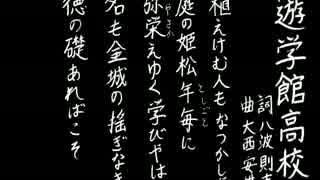 遊学館高校
詞 八波則吉
曲 大西安世
植えけむ人もなつかし
庭の姫松年毎に
としごと
弥栄えゆく学びやは
いやさか
名も金城の揺ぎなき
徳の礎あればこそ